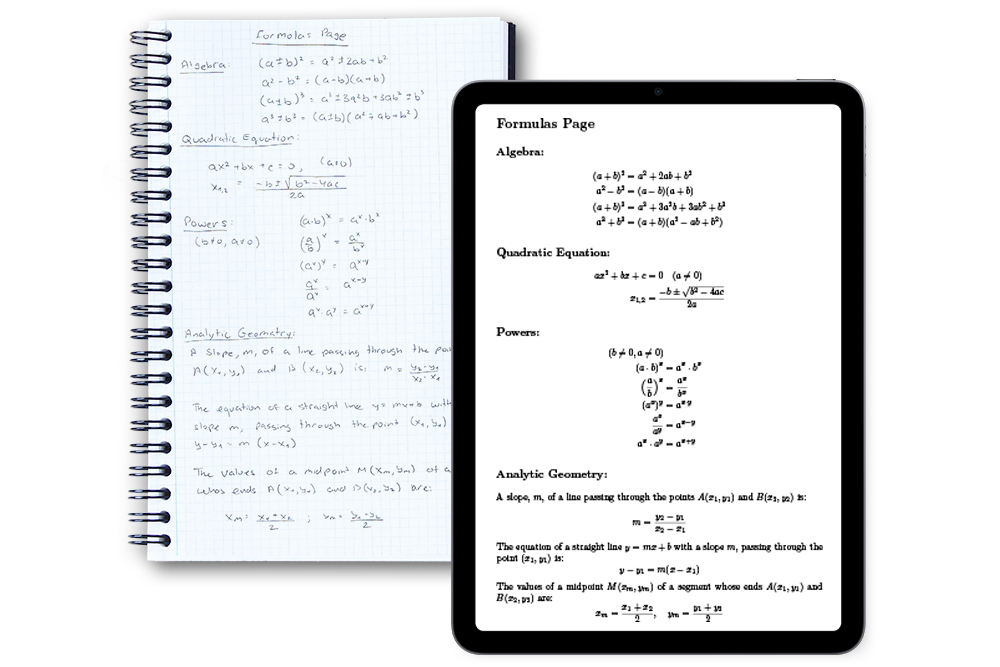 Formulas Page
Algebra:
(a ± b)² = a² ± 2ab + b²
a² - b² = (a-b)(a+b)
(a ± b)³ = a³ ± 3a²b + 3ab² ± b³
a³ ± b³ = (a±b)(a² ∓ ab + b²)
Quadratic Equation:
ax² + bx + c = 0, (a≠0)
x₁,₂ = (-b ± √(b² - 4ac)) / 2a
Powers:
(b≠0, a≠0)
(a·b)ˣ = aˣ · bˣ
(a/b)ˣ = aˣ/bˣ
(aˣ)ʸ = aˣ·ʸ
aˣ/aʸ = aˣ⁻ʸ
aˣ · aʸ = aˣ⁺ʸ
Analytic Geometry:
A slope, m, of a line passing through the poi
A(x₁, y₁) and B(x₂, y₂) is: m = (y₂ - y₁)/(x₂ - x₁)
The equation of a straight line y = mx+b with
slope m, passing through the point (x₁, y₁)
y-y₁ = m (x-x₁)
The values of a midpoint M(xm, ym) of a
whos ends A(x₁, y₁) and B(x₂, y₂) are:
xm = (x₁ + x₂)/2 ; ym = (y₁ + y₂)/2
Formulas Page
Algebra:
(a + b)² = a² + 2ab + b²
a² − b² = (a − b)(a + b)
(a + b)³ = a³ + 3a²b + 3ab² + b³
a³ + b³ = (a + b)(a² − ab + b²)
Quadratic Equation:
ax² + bx + c = 0 (a ≠ 0)
x₁,₂ = (−b ± √(b² − 4ac)) / 2a
Powers:
(b ≠ 0, a ≠ 0)
(a · b)ˣ = aˣ · bˣ
(a/b)ˣ = aˣ/bˣ
(aˣ)ʸ = aˣʸ
aˣ/aʸ = aˣ⁻ʸ
aˣ · aʸ = aˣ⁺ʸ
Analytic Geometry:
A slope, m, of a line passing through the points A(x₁, y₁) and B(x₂, y₂) is:
m = (y₂ − y₁)/(x₂ − x₁)
The equation of a straight line y = mx + b with a slope m, passing through the
point (x₁, y₁) is:
y − y₁ = m(x − x₁)
The values of a midpoint M(xm, ym) of a segment whose ends A(x₁, y₁) and
B(x₂, y₂) are:
xm = (x₁ + x₂)/2, ym = (y₁ + y₂)/2